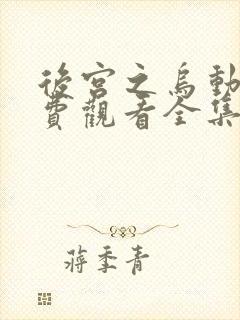 後宮之烏動
費觀看全集
蔣季青